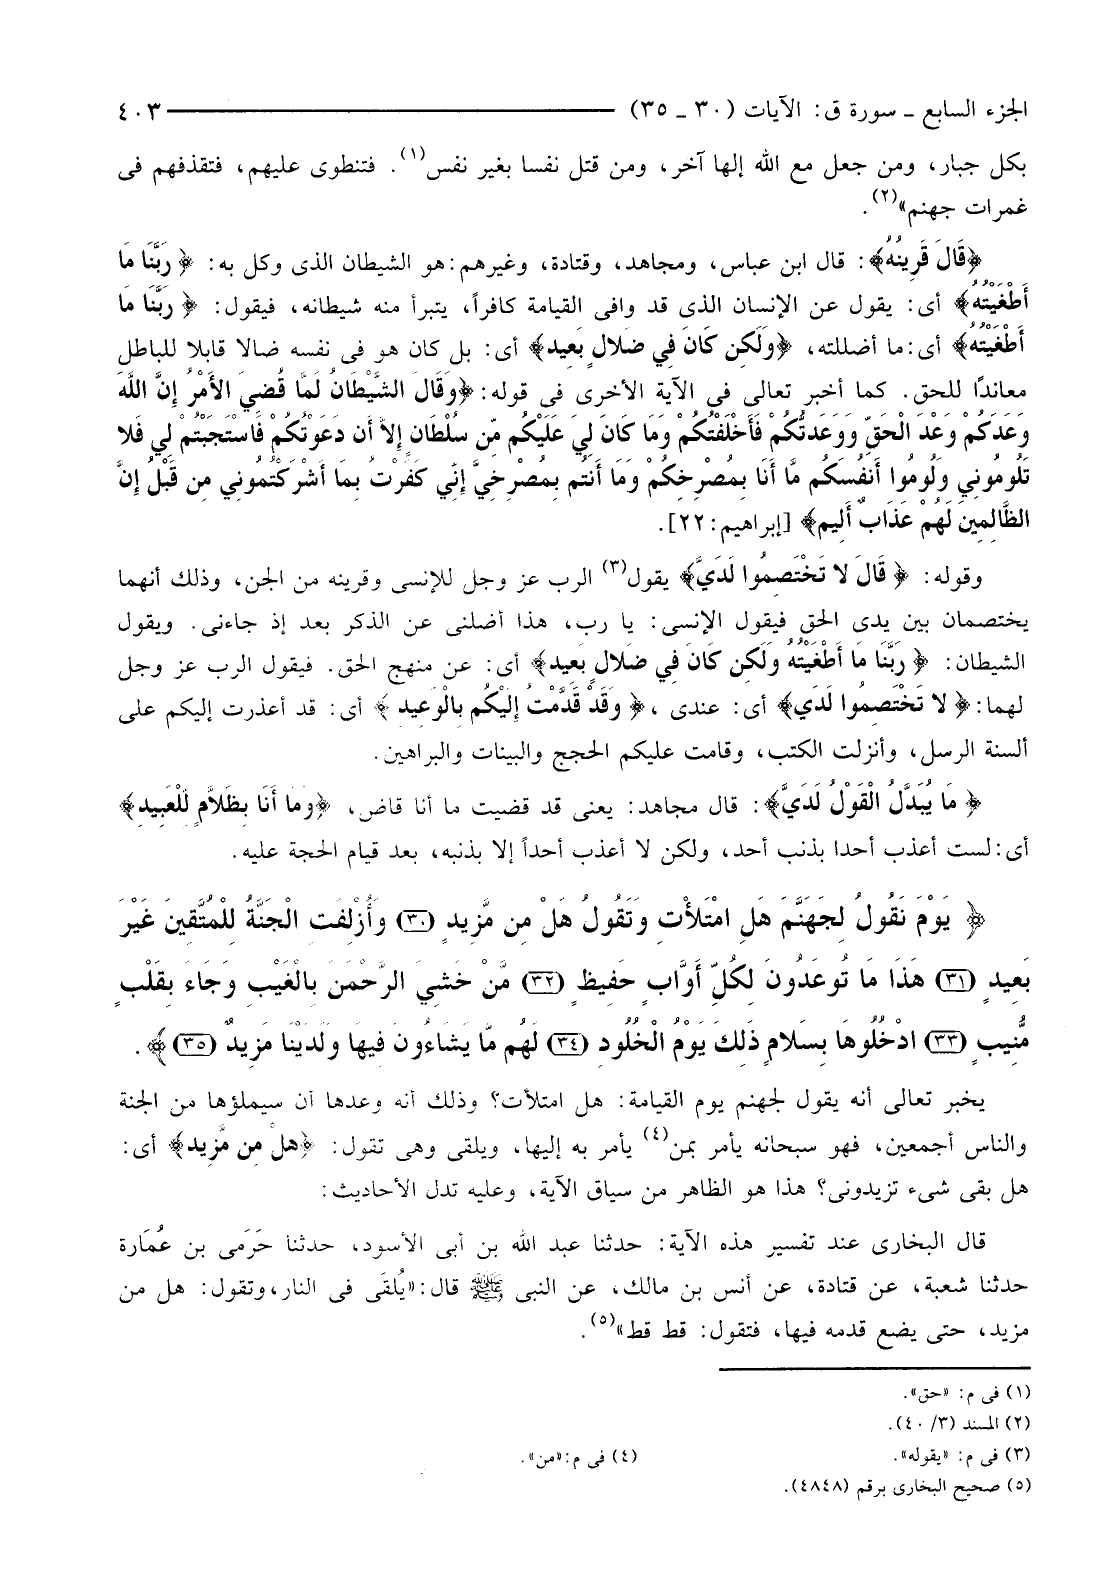 الجزء السابع ـ سورة ق: الآيات (٣٠ ـ ٣٥) ٤٠٣
بكل جبار، ومن جعل مع الله إلها آخر، ومن قتل نفسا بغير نفس(١). فتنطوى عليهم، فتقذفهم فى
غمرات جهنم»(٢).
﴿قَالَ قَرِينُهُ﴾: قال ابن عباس، ومجاهد، وقتادة، وغيرهم: هو الشيطان الذى وكل به: ﴿رَبَّنَا مَا
أَطْغَيْتُهُ﴾ أى: يقول عن الإنسان الذى قد وافى القيامة كافراً، يتبرأ منه شيطانه، فيقول: ﴿رَبَّنَا مَا
أَطْغَيْتُهُ﴾ أى: ما أضللته، ﴿وَلَكِن كَانَ فِي ضَلالٍ بَعِيدٍ﴾ أى: بل كان هو فى نفسه ضالا قابلا للباطل
معاندًا للحق. كما أخبر تعالى فى الآية الأخرى فى قوله: ﴿وَقَالَ الشَّيْطَانُ لَمَّا قُضِيَ الأَمْرُ إِنَّ اللَّهَ
وَعَدَكُمْ وَعْدَ الْحَقِّ وَوَعَدتُّكُمْ فَأَخْلَفْتُكُمْ وَمَا كَانَ لِيَ عَلَيْكُم مِّن سُلْطَانٍ إِلاَّ أَن دَعَوْتُكُمْ فَاسْتَجَبْتُمْ لِي فَلا
تَلُومُونِي وَلُومُوا أَنفُسَكُم مَّا أَنَا بِمُصْرِخِكُمْ وَمَا أَنتُم بِمُصْرِخِيَّ إِنِّي كَفَرْتُ بِمَا أَشْرَكْتُمُونِي مِن قَبْلُ إِنَّ
الظَّالِمِينَ لَهُمْ عَذَابٌ أَلِيم﴾ [إبراهيم: ٢٢].
وقوله: ﴿قَالَ لا تَخْتَصِمُوا لَدَيَّ﴾ يقول(٣) الرب عز وجل للإنسى وقرينه من الجن، وذلك أنهما
يختصمان بين يدى الحق فيقول الإنسى: يا رب، هذا أضلنى عن الذكر بعد إذ جاءنى. ويقول
الشيطان: ﴿رَبَّنَا مَا أَطْغَيْتُهُ وَلَكِن كَانَ فِي ضَلالٍ بَعِيدٍ﴾ أى: عن منهج الحق. فيقول الرب عز وجل
لهما: ﴿لا تَخْتَصِمُوا لَدَيَّ﴾ أى: عندى، ﴿وَقَدْ قَدَّمْتُ إِلَيْكُم بِالْوَعِيدِ﴾ أى: قد أعذرت إليكم على
ألسنة الرسل، وأنزلت الكتب، وقامت عليكم الحجج والبينات والبراهين.
﴿مَا يُبَدَّلُ الْقَوْلُ لَدَيَّ﴾: قال مجاهد: يعنى قد قضيت ما أنا قاض، ﴿وَمَا أَنَا بِظَلاَّمٍ لِّلْعَبِيدِ﴾
أى: لست أعذب أحدا بذنب أحد، ولكن لا أعذب أحداً إلا بذنبه، بعد قيام الحجة عليه.
﴿يَوْمَ نَقُولُ لِجَهَنَّمَ هَلِ امْتَلأْتِ وَتَقُولُ هَلْ مِن مَّزِيدٍ (٣٠) وَأُزْلِفَتِ الْجَنَّةُ لِلْمُتَّقِينَ غَيْرَ
بَعِيدٍ (٣١) هَذَا مَا تُوعَدُونَ لِكُلِّ أَوَّابٍ حَفِيظٍ (٣٢) مَّنْ خَشِيَ الرَّحْمَنَ بِالْغَيْبِ وَجَاءَ بِقَلْبٍ
مُّنِيبٍ (٣٣) ادْخُلُوهَا بِسَلامٍ ذَلِكَ يَوْمُ الْخُلُودِ (٣٤) لَهُم مَّا يَشَاءُونَ فِيهَا وَلَدَيْنَا مَزِيدٌ (٣٥)﴾.
يخبر تعالى أنه يقول لجهنم يوم القيامة: هل امتلأت؟ وذلك أنه وعدها أن سيملؤها من الجنة
والناس أجمعين، فهو سبحانه يأمر بمن(٤) يأمر به إليها، ويلقى وهى تقول: ﴿هَلْ مِن مَّزِيدٍ﴾ أى:
هل بقى شىء تزيدونى؟ هذا هو الظاهر من سياق الآية، وعليه تدل الأحاديث:
قال البخارى عند تفسير هذه الآية: حدثنا عبد الله بن أبى الأسود، حدثنا حَرَمى بن عُمَارة
حدثنا شعبة، عن قتادة، عن أنس بن مالك، عن النبى ﷺ قال: «يُلقَى فى النار، وتقول: هل من
مزيد، حتى يضع قدمه فيها، فتقول: قط قط»(٥).
(١) فى م: «حق».
(٢) المسند (٣/ ٤٠).
(٣) فى م: «يقوله». (٤) فى م: «من».
(٥) صحيح البخارى برقم (٤٨٤٨).